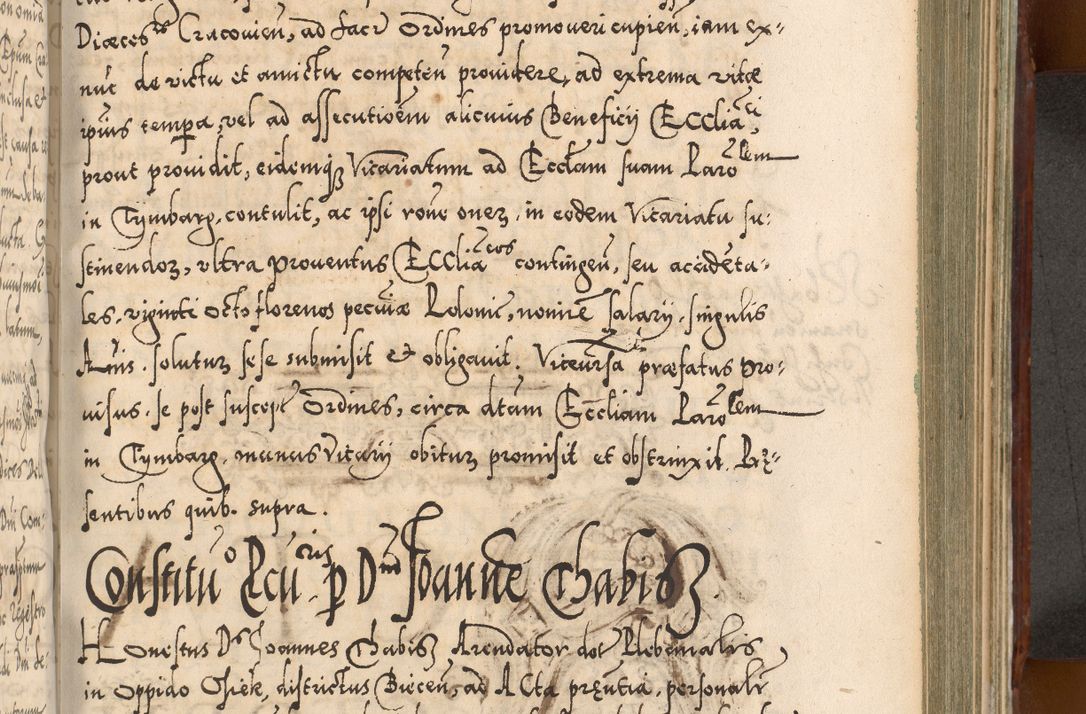 Diœces͠is Cracovien͂, ad sacr͂ Ordines promoveri cupien͂, iam ex-
nu͂c de victu et amictu competen͂ providere, ad extrema vitæ
ipsius tempora, vel ad assecutioem̄ alicuius Beneficij Ecclia͂ci,
prout providit, eidemq̨ Vicariatum ad Eccl͂am suam Paro͂lem
in Tymbarg, contulit, ac ipsi rōne onez, in eodem Vicariatu su-
stinendoz, ultra proventus Ecclia͂cos contingen͂, seu accide͂ta-
les, viginti octo florenos pecu͂iæ Poloni͂c, nomi͂e salarij, singulis
An͂is, soluturz sese submisit et obligavit. Viceversa præfatus pro-
visus, se post suscept͂ Ordines, circa d͂tam Ecc͂liam Paro͂lem
in Tymbarg, munus Vicarij obiturz promisit et obstrinxit. Præ-
sentibus quib. supra.
Constitu͂o Pcu͂ris p D͂num Joanne͂ Chabisz
Honestus D͂s Joannes Chabisz Arendator dot͂ Plebenialis
in oppido Osiek, districtus Biecen͂, ad Acta præn͂tia, personal͂r